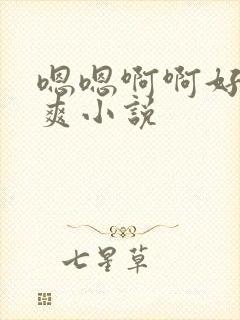 嗯嗯啊啊好
爽小説
七星草